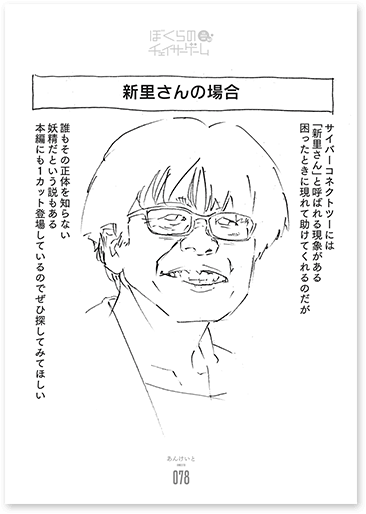 ぼくらの
チェイサーゲーム
新里さんの場合
サイバーコネクトツーには
「新里さん」と呼ばれる現象がある
困ったときに現れて助けてくれるのだが
誰もその正体を知らない
妖精だという説もある
本編にも1カット登場しているのでぜひ探してみてほしい
あんけいと
078